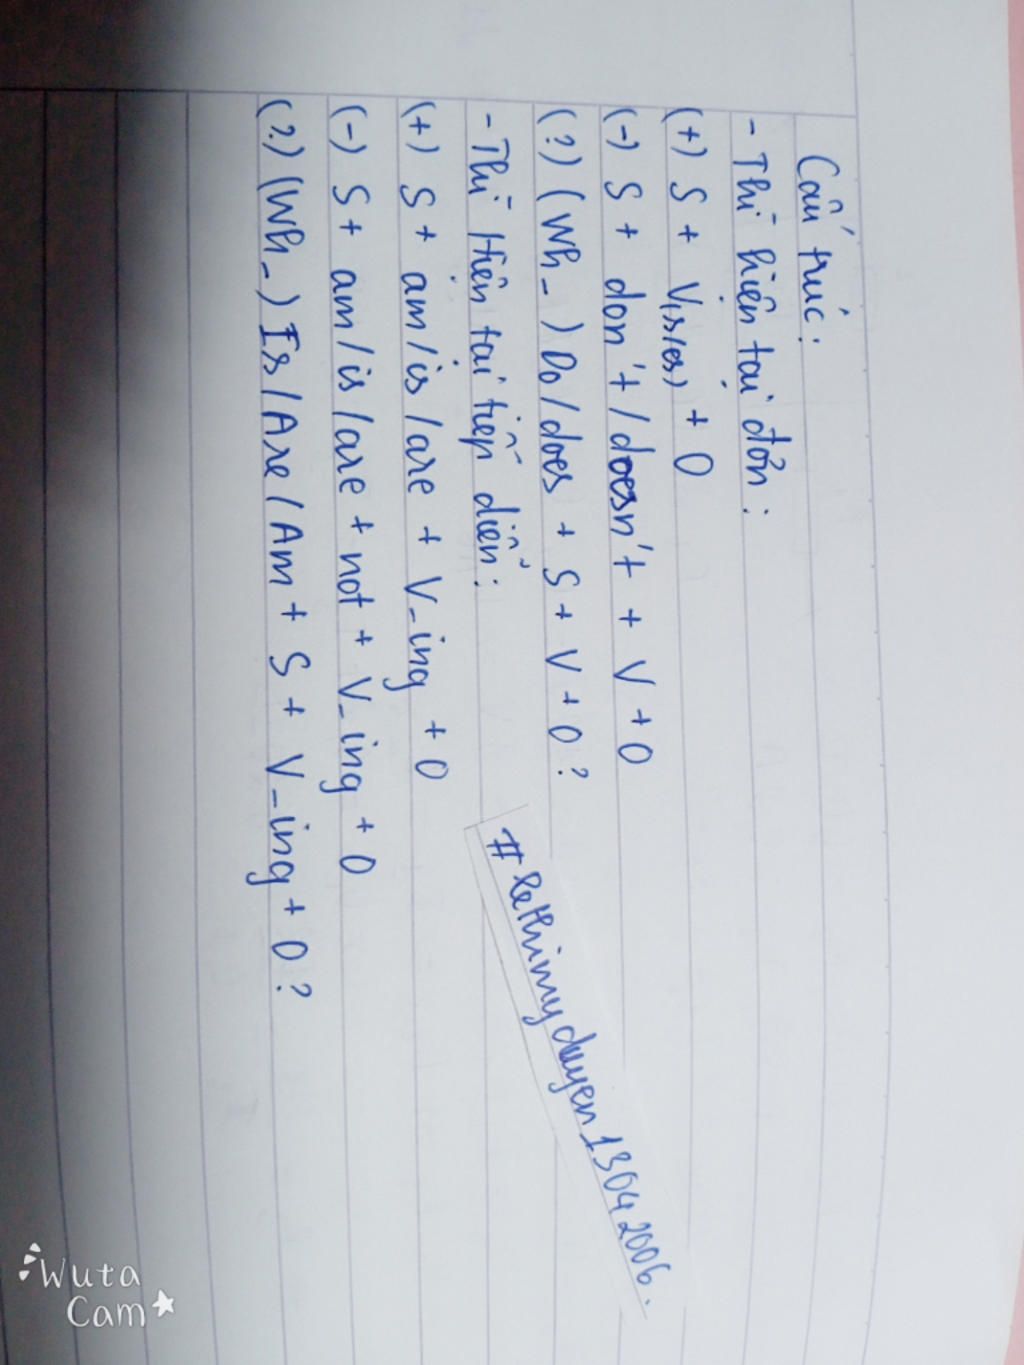 Cấu trúc:
- Thì hiện tại đơn:
(+) S + V(s/es) + O
(-) S + don't/doesn't + V + O
(?) (Wh_) Do/does + S + V + O?
- Thì Hiện tại tiếp diễn:
(+) S + am/is/are + V_ing + O
(-) S + am/is/are + not + V_ing + O
(?) (Wh_) Is/Are/Am + S + V_ing + O?
#lethimyduyen13042006.
Wuta
Cam